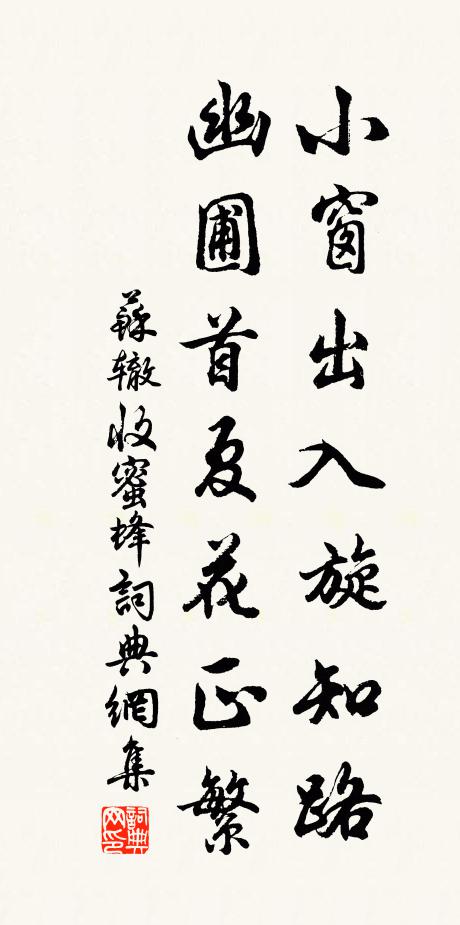 小窗出入旋知路
幽圃首夏花正繁
蘇辙收蜜蜂詞典網集
詞典
网印